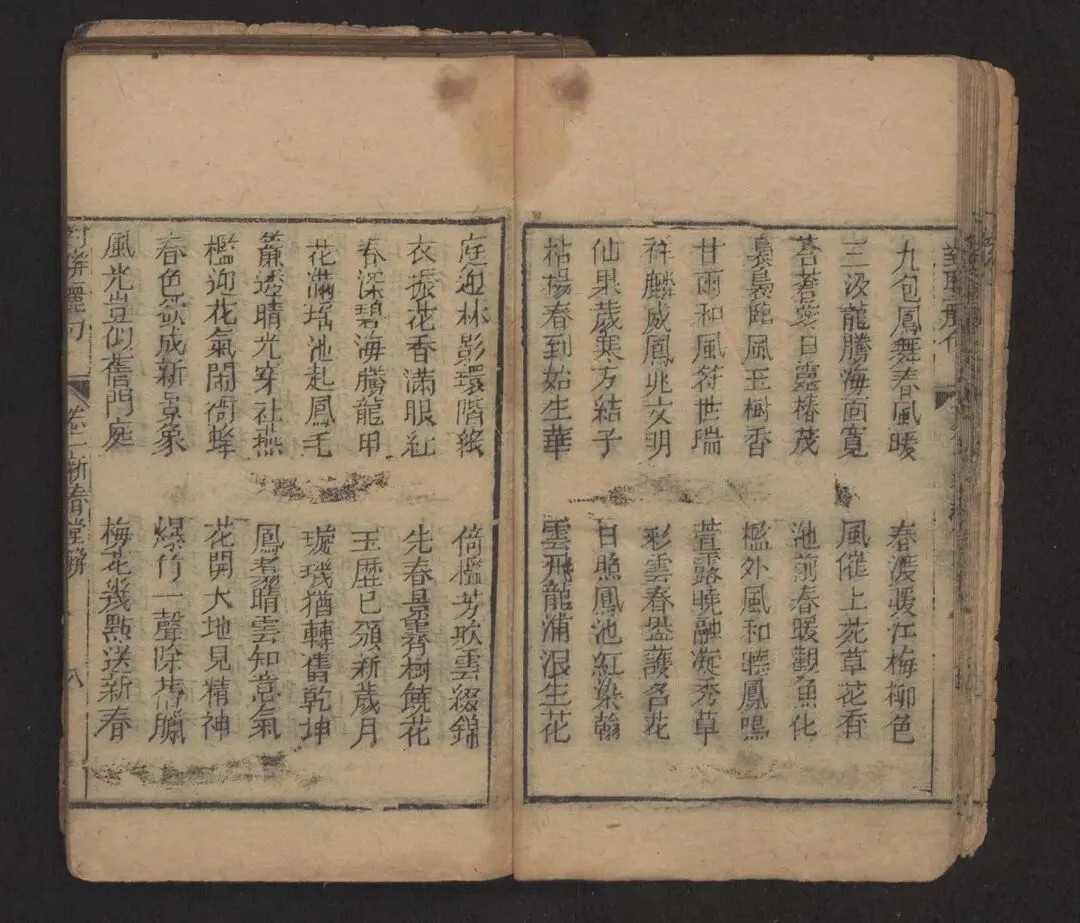 九包鳳舞春風暖
三汲龍騰海面寬
蒼蒼日靈椿茂
裊裊臨風玉樹香
甘雨和風符世瑞
祥麟威鳳兆文明
仙果歲寒方結子
枯楊春到始生華
春渡暖江梅柳色
風催上苑草花香
池前春暖觀魚化
檻外風和聽鳳鳴
萱露曉融凝秀草
彩雲春盎護名花
日照鳳池紅染翰
雲飛龍浦浪生花
庭迎林影環階綠
衣振花香滿眼紅
春深碧海騰龍甲
花滿瑤池起鳳毛
簾透晴光穿社燕
檻迎花氣鬧衙蜂
春色欲成新景象
風光豈似舊門庭
倚檻芳吹雲綴錦
先春景樹饒花
玉歷已頒新歲月
璇璣猶轉舊乾坤
鳳翥晴雲知意氣
花開大地見精神
爆竹一聲除舊臘
梅花幾點送新春
麗句 卷一 新春堂聯 八